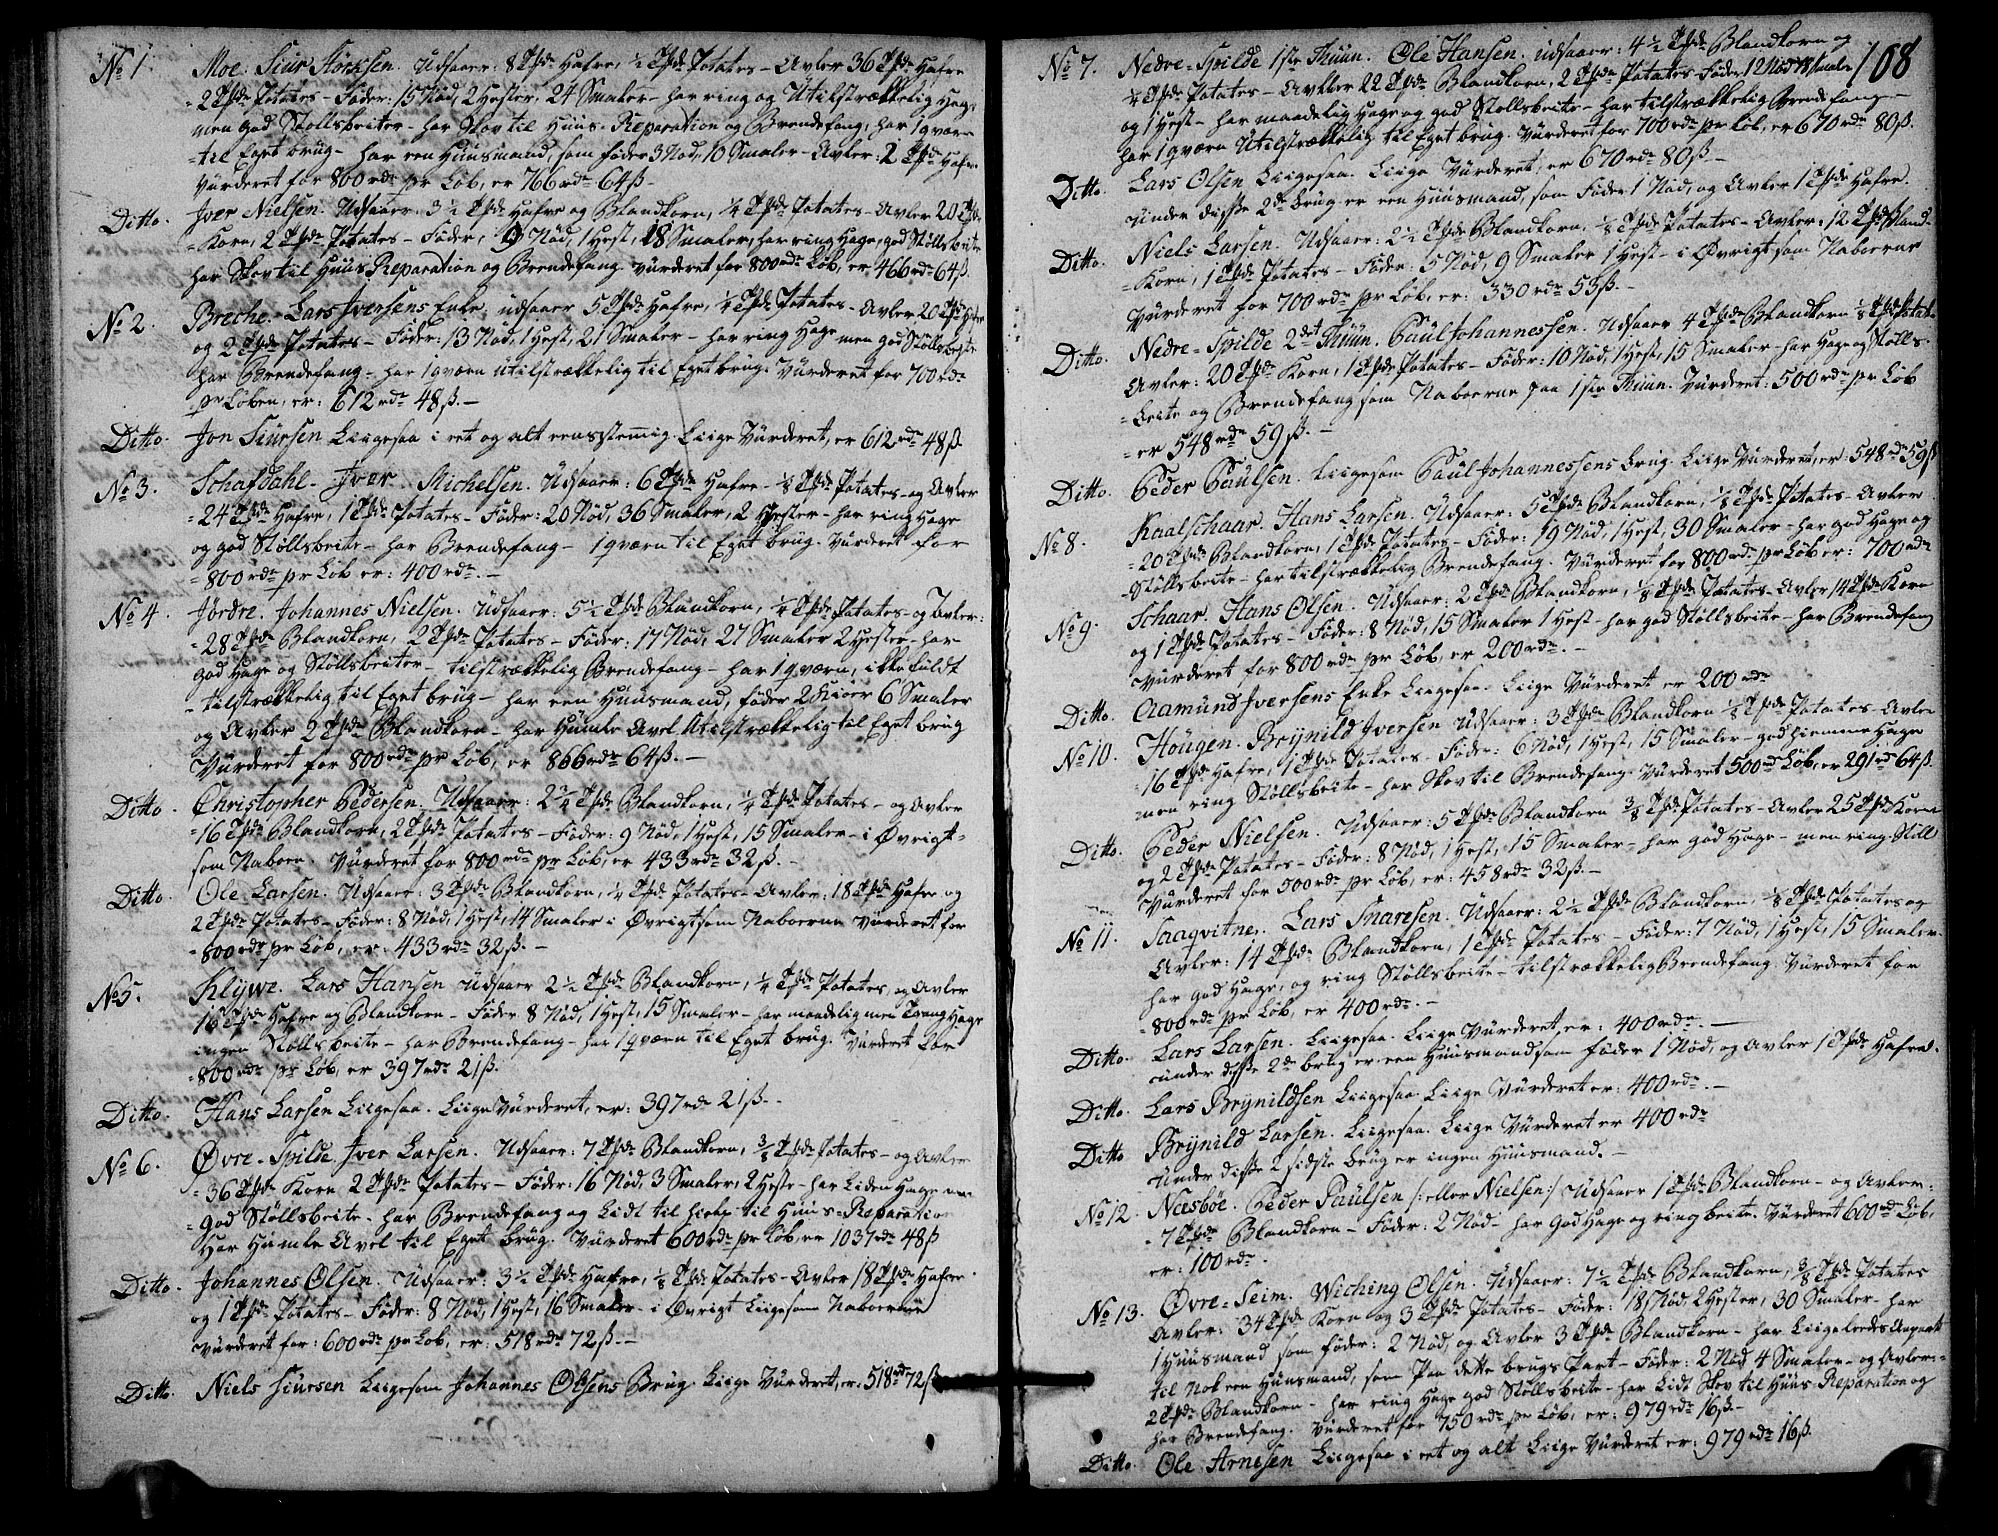 No 1. Moe. Siur Störksen. Udsaaer: 8 Tpde Hafre, 1/4 Tpde Potates – Avler 36 Tpde Hafre
2 Tpde Potates – Föder: 15 Nöd, 2 Hester, 24 Smaler – har ring og Utilstrækkelig Hage
men god Stöllsbeiter – har Skov til Huus-Reparation og Brendefang, har 1 qværn
til Eget brug – har een Huusmand, som föder 3 Nöd, 10 Smaler – Avler: 2 Tpde Hafre
Vurderet for 800 rdr pr Löb, er 766 rdr 64 ß. –
Ditto. Iver Nielsen. Udsaaer: 3 1/2 Tpde Hafre og Blandkorn, 1/4 Tpde Potates – Avler 20 Tpde
Korn, 2 Tpde Potates – Föder, 9 Nöd, 1 Hest, 18 Smaler, har ring Hage, god Stöllsbeite
har Skov til Huus Reparation og Brendefang. Vurderet for 800 rdr Löb, er 466 rdr 64 ß.
No 2. Breche. Lars Iversens Enke, udsaaer 5 Tpde Hafre, 1/4 Tpde Potates – Avler 20 Tpde Hafre
og 2 Tpde Potates – Föder: 13 Nöd, 1 Hest, 21 Smaler – har ring Hage men god Stöllsbeite
har Brendefang – har 1 qværn utilstrækkelig til Eget brug. Vurderet for 700 rdr
pr Löben, er: 612 rdr 48 ß. –
Ditto. Jon Siursen Liigesaa i eet og alt eensstemmig. Liige Vurderet, er 612 rdr 48 ß.
No 3. Schafdahl – Iver Michelsen. Udsaaer: 6 Tpde Hafre – 1/8 Tpde Potates – og Avler
24 Tpde Hafre, 1 Tpde Potates – Föder: 20 Nöd, 36 Smaler, 2 Hester – har ring Hage
og god Stöllsbeite – har Brendefang – 1 qværn til Eget brug. Vurderet for
800 rdr pr Löb er: 400 rdr. –
No 4. Jördre. Johannes Nielsen. Udsaaer: 5 1/2 Tpde Blandkorn, 1/4 Tpde Potates – og Avler:
28 Tpde Blandkorn, 2 Tpde Potates – Föder: 17 Nöd, 27 Smaler 2 Hester – har
god Hage og Stöllsbeiter – tilstrækkelig Brendefang – har 1 qværn, ikke fuldt
tilstrækkelig til Eget brug – har een Huusmand, föder 2 Kiöer 6 Smaler
og Avler 2 Tpde Blandkorn – har Humle Avel Utilstrækkelig til Eget brug
Vurderet for 800 rdr pr Löb, er 866 rdr 64 ß. –
Ditto. Christopher Pedersen. Udsaaer: 2 3/4 Tpde Blandkorn, 1/4 Tpde Potates – og Avler
16 Tpde Blandkorn, 2 Tpde Potates – Föder: 9 Nöd, 1 Hest, 15 Smaler – i Övrigt
som Naboen. Vurderet for 800 rdr pr Löb, er 433 rdr 32 ß. –
Ditto. Ole Larsen. Udsaaer: 3 Tpde Blandkorn, 1/4 Tpde Potates – Avler: 18 Tpde Hafre og
2 Tpde Potates – Föder: 8 Nöd, 1 Hest, 14 Smaler i Övrigt som Naboerne Vurderet for
800 rdr pr Löb, er: 433 rdr 32 ß. –
No 5. Klÿwe. Lars Hansen Udsaaer 2 1/2 Tpde Blandkorn, 1/4 Tpde Potates, og Avler
16 Tpde Hafre og Blandkorn – Föder 8 Nöd, 1 Hest, 15 Smaler – har maadelig men Trang Hage
ingen Stöllsbeite – har Brendefang – har 1 qværn til Eget brug. Vurderet for
800 rdr pr Löb, er 397 rdr 21 ß.
Ditto. Hans Larsen Liigesaa. Liige Vurderet, er: 397 rdr 21 ß. –
No 6. Övre-Spilde. Iver Larsen. Udsaaer: 7 Tpde Blandkorn, 3/8 Tpde Potates – og Avler
36 Tpde Korn 2 Tpde Potates – Föder: 16 Nöd, 3 Smaler, 2 Heste – har Liden Hage
God Stöllsbeite – har Brendefang og Lidt til hielp til Huus-Reparation
Har Humle Avel til Eget brug. Vurderet 600 rdr pr Löb, er 1037 rdr 48 ß
Ditto. Johannes Olsen. Udsaaer: 3 1/2 Tpde Hafre, 1/8 Tpde Potates – Avler 18 Tpde Hafre
og 1 Tpde Potates – Föder: 8 Nöd, 1 Hest, 16 Smaler – i Övrigt Liigesom Naboerne
Vurderet for: 600 rdr pr Löb, er: 518 rdr 72 ß. –
Ditto. Niels Siursen Liigesom Johannes Olsens Brug. Liige Vurderet, er: 518 rdr 72 ß
108
No 7. Nedre-Spilde 1ste Thuun. Ole Hansen. udsaaer: 4 1/2 Tpde Blandkorn og
1/4 Tpde Potates – Avler 22 Tpde Blandkorn, 2 Tpde Potates – Föder, 12 Nöd 18 Smaler
og 1 Hest – har maadelig Hage og god Stöllsbeite – har tilstrækkelig Brendefang –
har 1 qværn Utilstrækkelig til Eget brug. Vurderet for 700 rdr pr Löb, er 670 rdr 80 ß.
Ditto. Lars Olsen Liigesaa. Liige Vurderet, er 670 rdr 80 ß. –
Under disse 2de brug er een Huusmand, som Föder 1 Nöd, og Avler 1 Tpde Hafre.
Ditto. Niels Larsen. Udsaaer: 2 1/2 Tpde Blandkorn, 1/8 Tpde Potates – Avler: 12 Tpde Bland-
Korn, 1 Tpde Potates – Föder: 5 Nöd, 9 Smaler 1 Hest – i Övrigt som Naboerne
Vurderet for 700 rdr pr Löb, er: 330 rdr 53 ß. –
Ditto. Nedre-Spilde 2det Thuun. Paul Johannessen. Udsaaer 4 Tpde Blandkorn 1/8 Tpde Potates
Avler: 20 Tpde Korn, 1 Tpde Potates – Föder: 10 Nöd, 1 Hest, 15 Smaler – har Hage og Stölls-
beite og Brendefang som Naboerne paa 1ste Thuun. Vurderet: 500 rdr pr Löb
er 548 rdr 59 ß. –
Ditto. Peder Paulsen. Liigesom Paul Johannessens brug. Liige Vurderet, er: 548 rdr 59 ß
No 8. Kaalschaar. Hans Larsen. Udsaaer: 5 Tpde Blandkorn, 1/8 Tpde Potates – Avler
20 Tpde Blandkorn, 1 Tpde Potates – Föder: 19 Nöd, 1 Hest, 30 Smaler – har god Hage og
Stöllsbeite – har tilstrækkelig Brendefang. Vurderet for 800 rdr pr Löb er: 700 rdr
No 9. Schaar. Hans Olsen. Udsaaer: 2 Tpde Blandkorn, 1/8 Tpde Potates – Avler 14 Tpde Korn
og 1 Tpde Potates – Föder: 8 Nöd, 15 Smaler 1 Hest – har god Stöllsbeite – har Brendefang
Vurderet for 800 rdr pr Löb, er 200 rdr. –
Ditto. Aamund Iversens Enke Liigesaa. Liige Vurderet er 200 rdr
No 10. Hougen. Brÿnild Iversen Udsaaer: 3 Tpde Blandkorn 1/8 Tpde Potates – Avler
16 Tpde Hafre, 1 Tpde Potates. Föder: 6 Nöd, 1 Hest, 15 Smaler – god hiemme Hage
men ring Stöllsbeite – har Skov til Brendefang. Vurderet 500 rdr Löb, er 291 rdr 64 ß.
Ditto. Peder Nielsen. Udsaaer: 5 Tpde Blandkorn 3/8 Tpde Potates – Avler 25 Tpde Korn
og 2 Tpde Potates – Föder: 8 Nöd, 1 Hest, 15 Smaler – har god Hage – men ring Stöll
Vurderet for 500 rdr pr Löb, er: 458 rdr 32 ß. –
No 11. Saaqvitne. Lars Snaresen. Udsaaer: 2 1/2 Tpde Blandkorn, 1/8 Tpde Potates og
Avler: 14 Tpde Blandkorn, 1 Tpde Potates – Föder: 7 Nöd, 1 Hest, 15 Smaler
har god Hage, og ring Stöllsbeite – tilstrækkelig Brendefang. Vurderet for
800 rdr pr Löb, er 400 rdr. –
Ditto. Lars Larsen. Liigesaa. Liige Vurderet, er: 400 rdr. –
under disse 2de brug er een Huusmand som föder 1 Nöd, og Avler 1 Tpde Hafre.
Ditto. Lars Brÿnildsen Liigesaa. Liige Vurderet er: 400 rdr. –
Ditto Brÿnild Larsen. Liigesaa. Liige Vurderet er 400 rdr
Under disse 2 sidste brug er ingen Huusmand. –
No 12. Neesböe. Peder Paulsen /: eller Nielsen :/ Udsaaer 1 Tpde Blandkorn – og Avler:
7 Tpde Blandkorn – Föder: 2 Nöd – har God Hage og ring beite. Vurderet 600 rdr Löb,
er: 100 rdr.
No 13. Övre-Seim. Wiching Olsen. Udsaaer: 7 1/2 Tpde Blandkorn, 3/8 Tpde Potates
Avler: 34 Tpde Korn og 3 Tpde Potates – Föder: 18 Nöd, 2 Hester, 30 Smaler – har
1 Huusmand som föder: 2 Nöd, og Avler 3 Tpde Blandkorn – har Liigeledes Anpart
til Nok een Huusmand, som Paa dette brugs Part – Föder: 2 Nöd 4 Smaler – og Avler:
2 Tpde Blandkorn – har ring Hage god Stöllsbeite – har Lidt Skov til Huus-Reparation og
har Brendefang. Vurderet for 750 rdr pr Löb, er: 979 rdr 16 ß. –
Ditto. Ole Arnesen Liigesaa i eet og alt Liige Vurderet er: 979 rdr 16 ß.